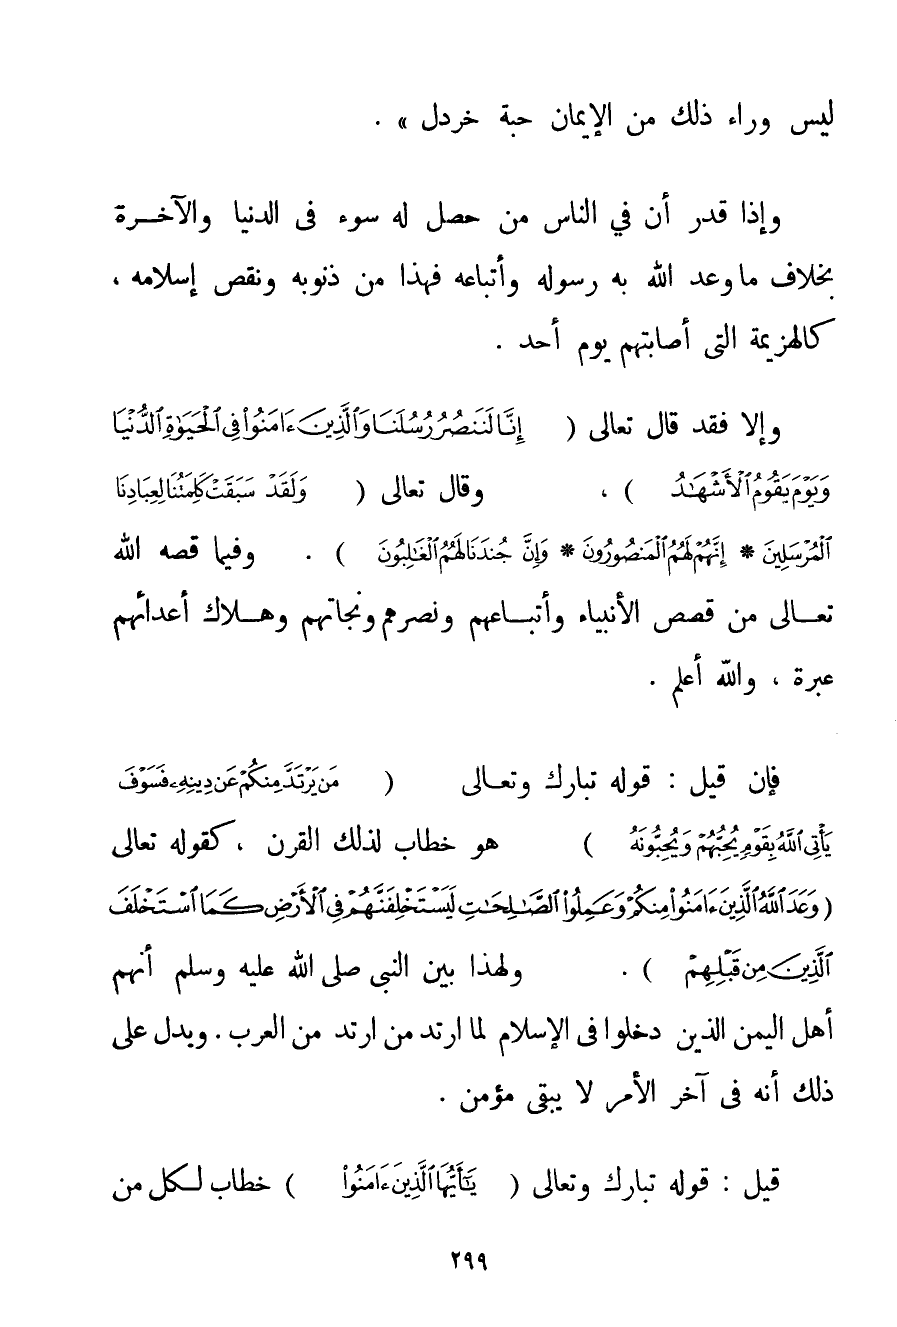 ليس وراء ذلك من الإيمان حبة خردل » .
وإذا قدر أن في الناس من حصل له سوء فى الدنيا والآخـرة
بخلاف ماوعد الله به رسوله وأتباعه فهذا من ذنوبه ونقص إسلامه ،
كالهزيمة التى أصابتهم يوم أحد .
وإلا فقد قال تعالى ( إِنَّا لَنَنصُرُ رُسُلَنَا وَالَّذِينَ ءَامَنُوا۟ فِى ٱلْحَيَوٰةِ ٱلدُّنْيَا
وَيَوْمَ يَقُومُ ٱلْأَشْهَـٰدُ ) ، وقال تعالى ( وَلَقَدْ سَبَقَتْ كَلِمَتُنَا لِعِبَادِنَا
ٱلْمُرْسَلِينَ * إِنَّهُمْ لَهُمُ ٱلْمَنصُورُونَ * وَإِنَّ جُندَنَا لَهُمُ ٱلْغَـٰلِبُونَ ) . وفيما قصه الله
تعـالى من قصص الأنبياء وأتبـاعهم ونصرهم ونجاتهم وهـلاك أعدائهم
عبرة ، والله أعلم .
فإن قيل : قوله تبارك وتعـالى ( مَن يَرْتَدَّ مِنكُمْ عَن دِينِهِۦ فَسَوْفَ
يَأْتِى ٱللَّهُ بِقَوْمٍ يُحِبُّهُمْ وَيُحِبُّونَهُ ) هو خطاب لذلك القرن ، كقوله تعالى
( وَعَدَ ٱللَّهُ ٱلَّذِينَ ءَامَنُوا۟ مِنكُمْ وَعَمِلُوا۟ ٱلصَّـٰلِحَـٰتِ لَيَسْتَخْلِفَنَّهُمْ فِى ٱلْأَرْضِ كَمَا ٱسْتَخْلَفَ
ٱلَّذِينَ مِن قَبْلِهِمْ ) . ولهذا بين النبي صلى الله عليه وسلم أنهم
أهل اليمن الذين دخلوا فى الإسلام لما ارتد من ارتد من العرب . ويدل على
ذلك أنه فى آخر الأمر لا يبقى مؤمن .
قيل : قوله تبارك وتعالى ( يَـٰٓأَيُّهَا ٱلَّذِينَ ءَامَنُوا۟ ) خطاب لـكل من
٢٩٩